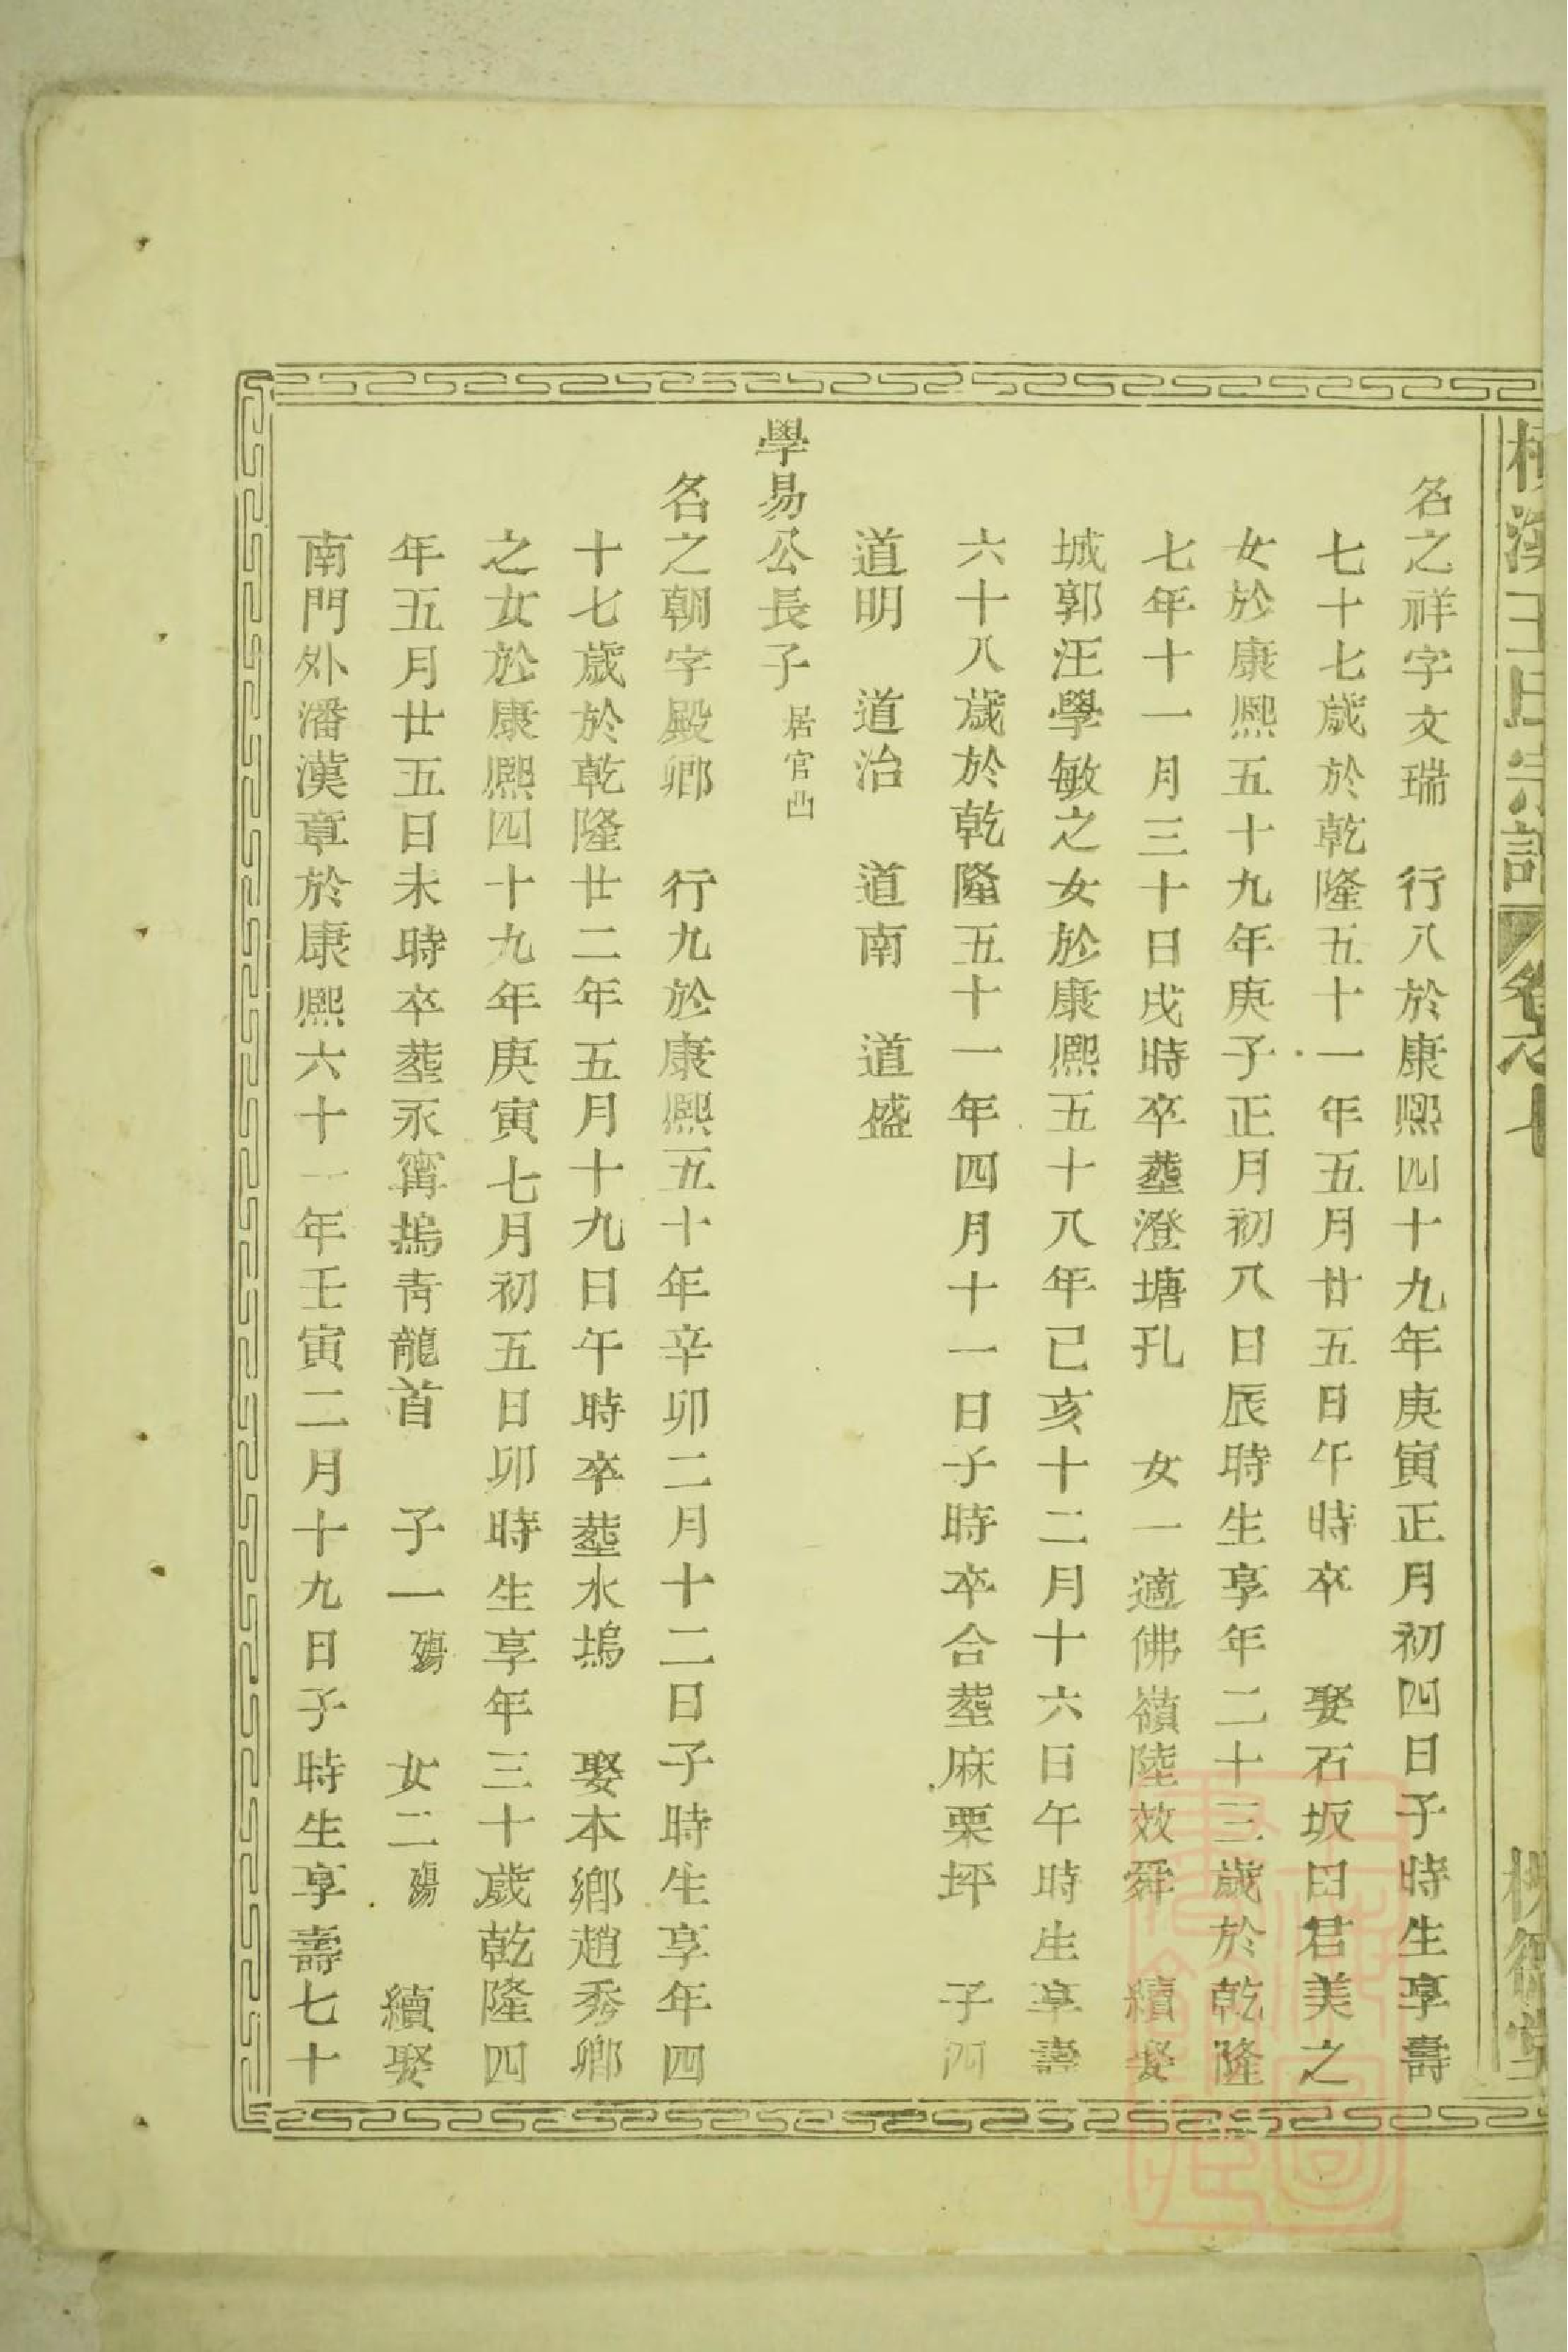 王氏宗譜 卷之七
名之祥字文瑞 行八於康熙四十九年庚寅正月初四日子時生享壽
七十七歲於乾隆五十一年五月廿五日午時卒 娶石坂田君美之
女於康熙五十九年庚子正月初八日辰時生享年二十三歲於乾隆
七年十一月三十日戌時卒塟澄塘孔 女一適佛嶺陸效舜 續娶
城郭汪學敏之女於康熙五十八年己亥十二月十六日午時生享壽
六十八歲於乾隆五十一年四月十一日子時卒合塟麻栗坪 子四
道明 道治 道南 道盛
學易公長子 居官山
名之朝字殿卿 行九於康熙五十年辛卯二月十二日子時生享年四
十七歲於乾隆廿二年五月十九日午時卒塟水塢 娶本鄉趙秀卿
之女於康熙四十九年庚寅七月初五日卯時生享年三十歲乾隆四
年五月廿五日未時卒塟永甯塢青龍首 子一殤 女二殤 續娶
南門外潘漢章於康熙六十一年壬寅二月十九日子時生享壽七十